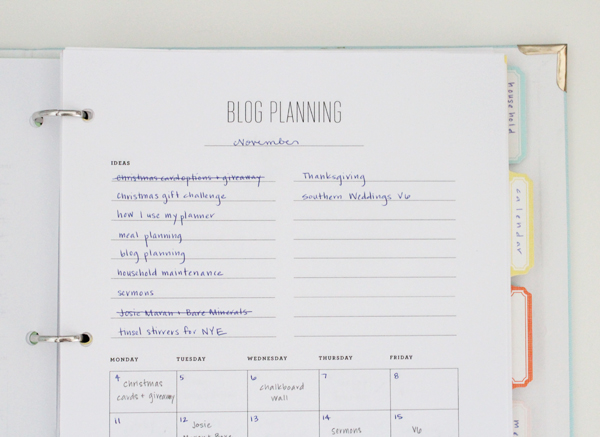 BLOG PLANNING
November
IDEAS
Christmas card options + giveaway
Christmas gift challenge
how I use my planner
meal planning
blog planning
household maintenance
sermons
Josie Maran + Bare Minerals
tinsel stirrers for NYE
Thanksgiving
Southern Weddings V6
MONDAY TUESDAY WEDNESDAY THURSDAY FRIDAY
4 Christmas
cards + giveaway
5
6 chalkboard
wall
7
8
11
12 Josie
13
14 sermons
15 V6
household
calendar